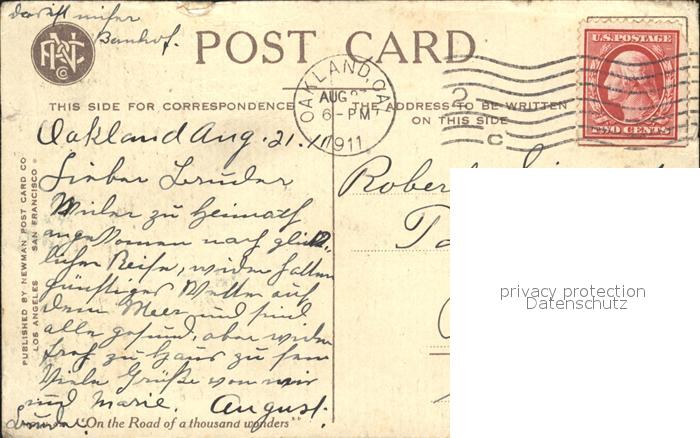 da ist unser
Bahnhof.
POST CARD
OAKLAND, CAL
AUG
6-PM
1911
U.S. POSTAGE
TWO CENTS
2
C
THIS SIDE FOR CORRESPONDENCE
THE ADDRESS TO BE WRITTEN
ON THIS SIDE
PUBLISHED BY NEWMAN POST CARD CO.
LOS ANGELES SAN FRANCISCO
Oakland Aug. 21. 1911
Lieber Bruder
Wieder zu Heimath
angekommen nach glück-
licher Reise, wieder hatten
günstiges Wetter auf
dem Meer und sind
alle gesund, aber wieder
froh zu Haus zu sein
Viele Grüße von mir
und Marie. August.
Bruder
"On the Road of a thousand wonders"
Rober
privacy protection
Datenschutz